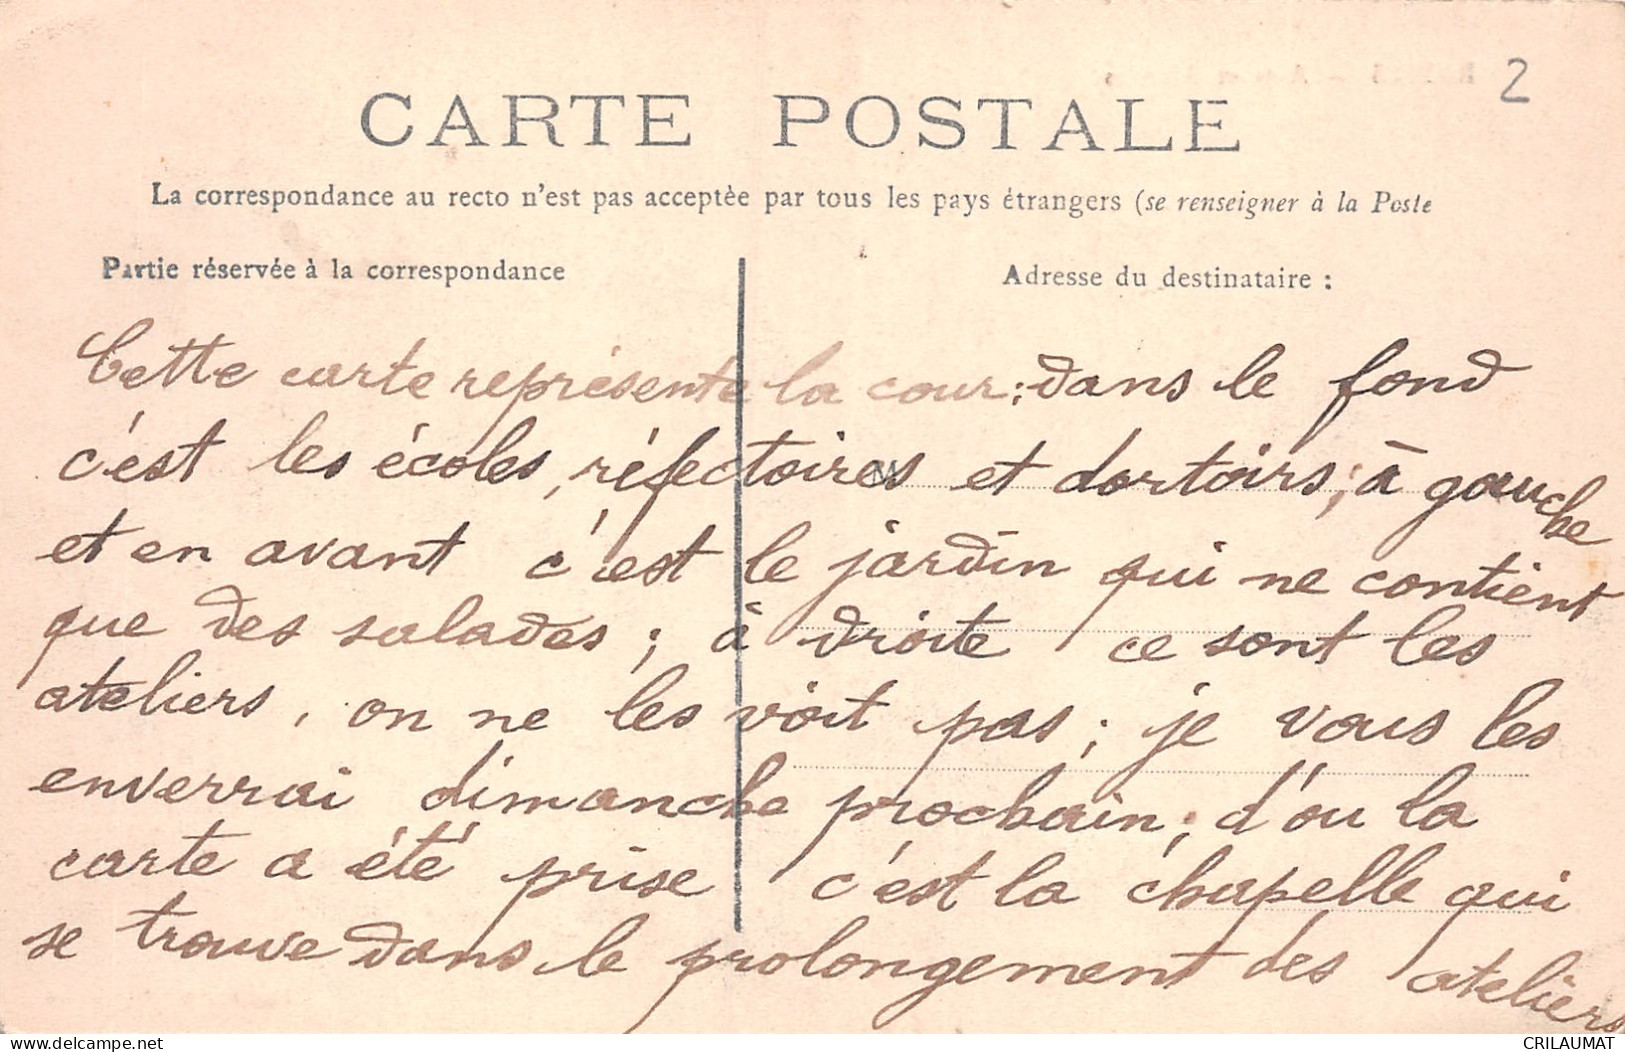 2
CARTE POSTALE
La correspondance au recto n'est pas acceptée par tous les pays étrangers (se renseigner à la Poste
Partie réservée à la correspondance
Adresse du destinataire :
Cette carte représente la cour; dans le fond
c'est les écoles, réfectoires et dortoirs; à gauche
et en avant c'est le jardin qui ne contient
que des salades; à droite ce sont les
ateliers, on ne les voit pas; je vous les
enverrai dimanche prochain; d'ou la
carte a été prise c'est la chapelle qui
se trouve dans le prolongement des ateliers
CRILAUMAT